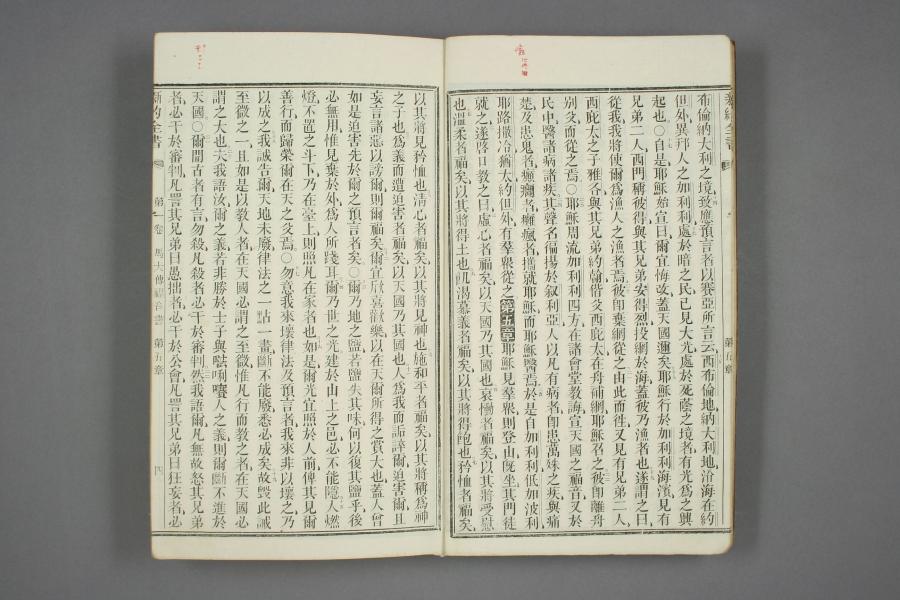 布倫納大利之境致應預言者以賽亞所言云西布倫地納大利地沿海在約
但外異邦人之加利利處於暗之民已見大光處於死蔭之境者有光爲之興
起也○自是耶穌始宣曰爾宜悔改蓋天國邇矣耶穌行於加利利海濱見有
兄弟二人西門稱彼得與其兄弟安得烈投網於海蓋彼乃漁者也遂謂之曰
從我我將使爾爲漁人之漁者焉彼卽棄網從之由此而徃又見有兄弟二人
西庇太之子雅各與其兄弟約翰偕父西庇太在舟補網耶穌召之彼卽離舟
別父而從之焉○耶穌周流加利利四方在諸會堂教誨宣天國之福音又於
民中醫諸病諸疾其聲名徧揚於叙利亞人以凡有病者卽患萬殊之疾與痛
楚及患鬼者癲癇者癱瘋者攜就耶穌而耶穌醫焉於是自加利利低加波利
耶路撒冷猶太約但外有羣衆從之第五章耶穌見羣衆則登山旣坐其門徒
就之遂啓口教之曰虛心者福矣以天國乃其國也哀慟者福矣以其將受慰
也溫柔者福矣以其將得土也飢渴慕義者福矣以其將得飽也矜恤者福矣
以其將見矜恤也清心者福矣以其將見神也施和平者福矣以其將稱爲神
之子也爲義而遭迫害者福矣以天國乃其國也人爲我而詬誶爾迫害爾且
妄言諸惡以謗爾則爾福矣爾宜欣喜歡樂以在天爾所得之賞大也蓋人曾
如是迫害先於爾之預言者矣○爾乃地之鹽若鹽失其味何以復其鹽乎後
必無用惟見棄於外爲人所踐耳爾乃世之光建於山上之邑必不能隱人燃
燈不置之斗下乃在臺上則照凡在家者也如是爾光宜照於人前俾其見爾
善行而歸榮爾在天之父焉○勿意我來壞律法及預言者我來非以壞之乃
以成之我誠告爾天地未廢律法之一點一畫斷不能廢悉必成矣故毀此誡
至微之一且如是以教人者在天國必謂之至微惟凡行而教之者在天國必
謂之大也夫我語汝爾之義若非勝於士子與𠵽唎㘔人之義則爾斷不進於
天國○爾聞古者有言勿殺凡殺者必干於審判然我語爾凡無故怒其兄弟
者必干於審判凡詈其兄弟曰愚拙者必干於公會凡詈其兄弟曰狂妄者必
新約全書 第一卷 馬太傳福音書 第五章 四